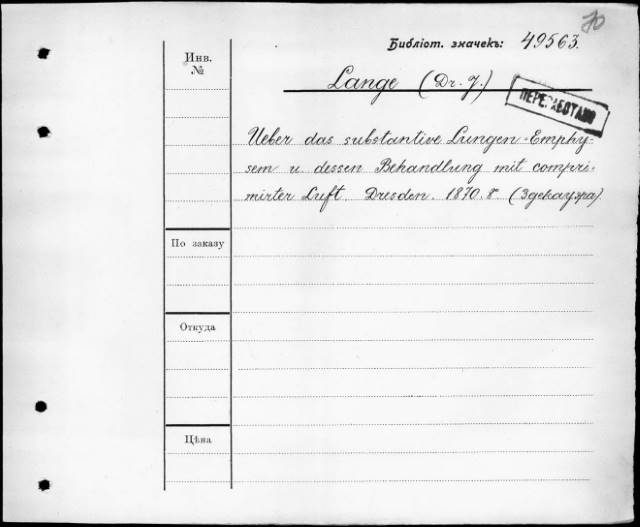 70
Библіот. значекъ: 49563.
Инв.
№
Lange (Dr. J.)
ПЕРЕРАБОТАНО
Ueber das substantive Lungen-Emphy-
sem u. dessen Behandlung mit compri-
mirter Luft. Dresden. 1870. 8°. (Здекауэра).
По заказу
Откуда
Цѣна